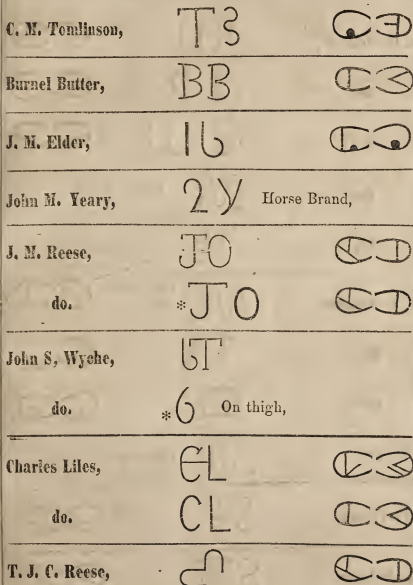 C. M. Tomlinson, T 3
Burnel Butter, BB
J. M. Elder,
John M. Yeary, 2 Y Horse Brand,
J. M. Reese, JO
do. *JO
John S, Wyche,
do. *6 On thigh,
Charles Liles, EL
do. CL
T. J. C. Reese,